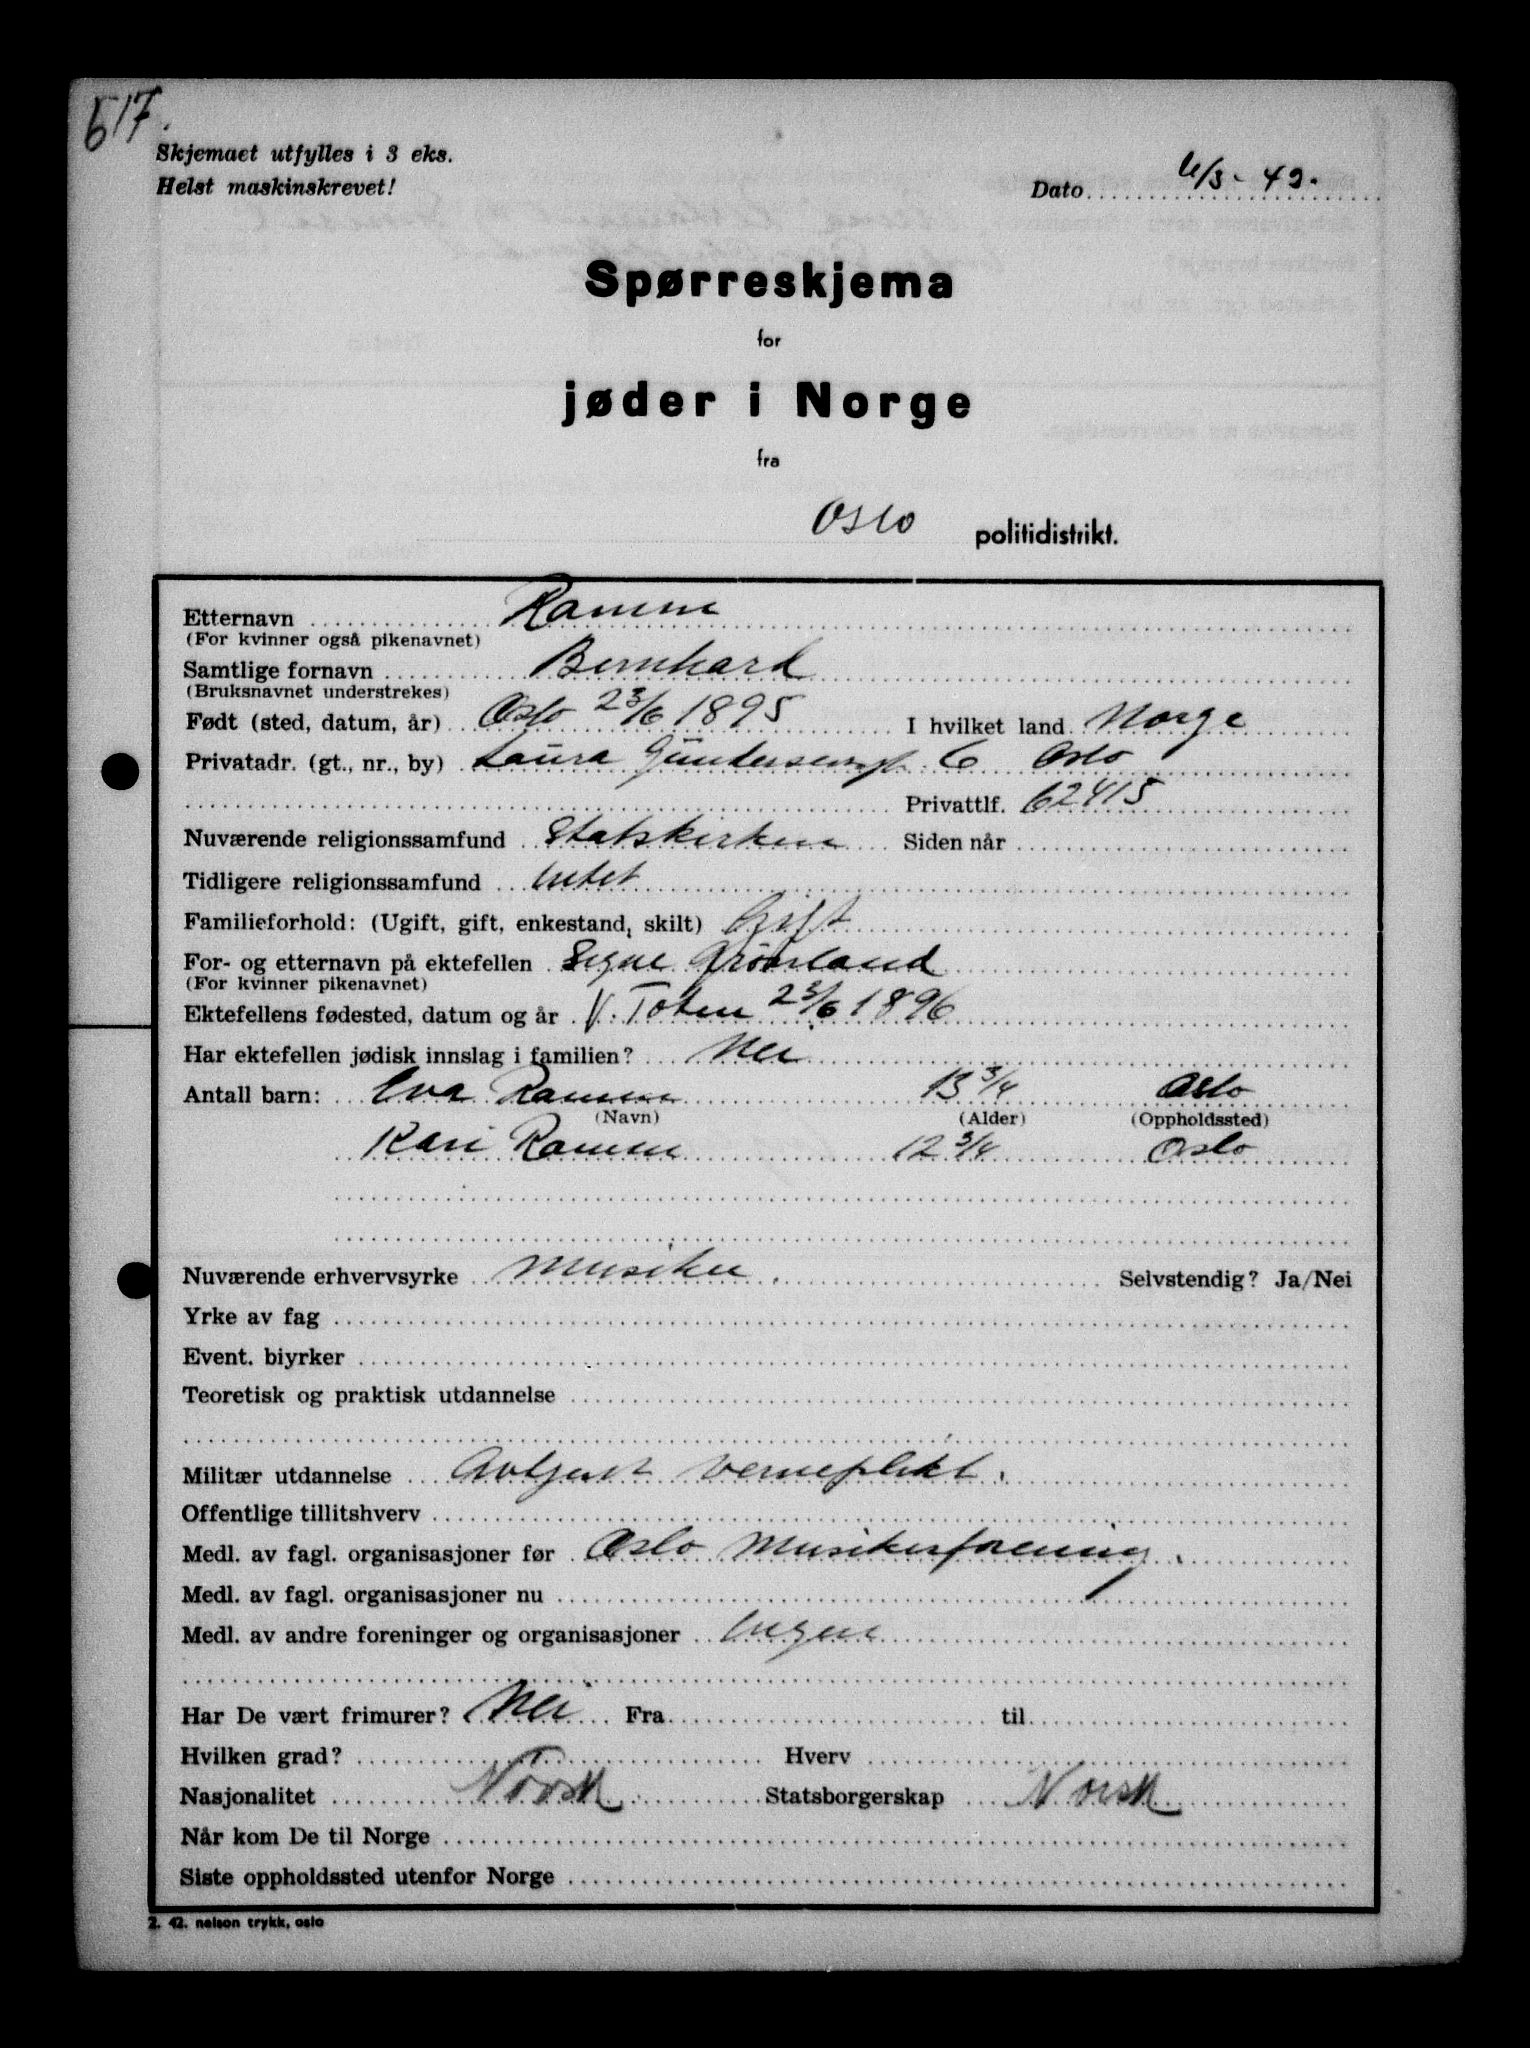 517.
Skjemaet utfylles i 3 eks.
Helst maskinskrevet!
Dato 6/3-42.
Spørreskjema
for
jøder i Norge
fra
Oslo politidistrikt.
Etternavn Ramm
(For kvinner også pikenavnet)
Samtlige fornavn Bernhard
(Bruksnavnet understrekes)
Født (sted, datum, år) Oslo 23/6 1895 I hvilket land Norge
Privatadr. (gt., nr., by) Laura Gundersensgt. 6 Oslo
Privattlf. 62415
Nuværende religionssamfund Statskirken Siden når
Tidligere religionssamfund Intet
Familieforhold: (Ugift, gift, enkestand, skilt) Gift
For- og etternavn på ektefellen Signe Grönland
(For kvinner pikenavnet)
Ektefellens fødested, datum og år V. Toten 23/6 1896
Har ektefellen jødisk innslag i familien? Nei
Antall barn: Eva Ramm 13 3/4 Oslo
(Navn) (Alder) (Oppholdssted)
Kari Ramm 12 3/4 Oslo
Nuværende erhvervsyrke Musiker. Selvstendig? Ja/Nei
Yrke av fag
Event. biyrker
Teoretisk og praktisk utdannelse
Militær utdannelse Avtjent verneplikt.
Offentlige tillitshverv
Medl. av fagl. organisasjoner før Oslo Musikerforening.
Medl. av fagl. organisasjoner nu
Medl. av andre foreninger og organisasjoner Ingen
Har De vært frimurer? Nei Fra til
Hvilken grad? Hverv
Nasjonalitet Norsk Statsborgerskap Norsk
Når kom De til Norge
Siste oppholdssted utenfor Norge
2. 42. nelson trykk, oslo